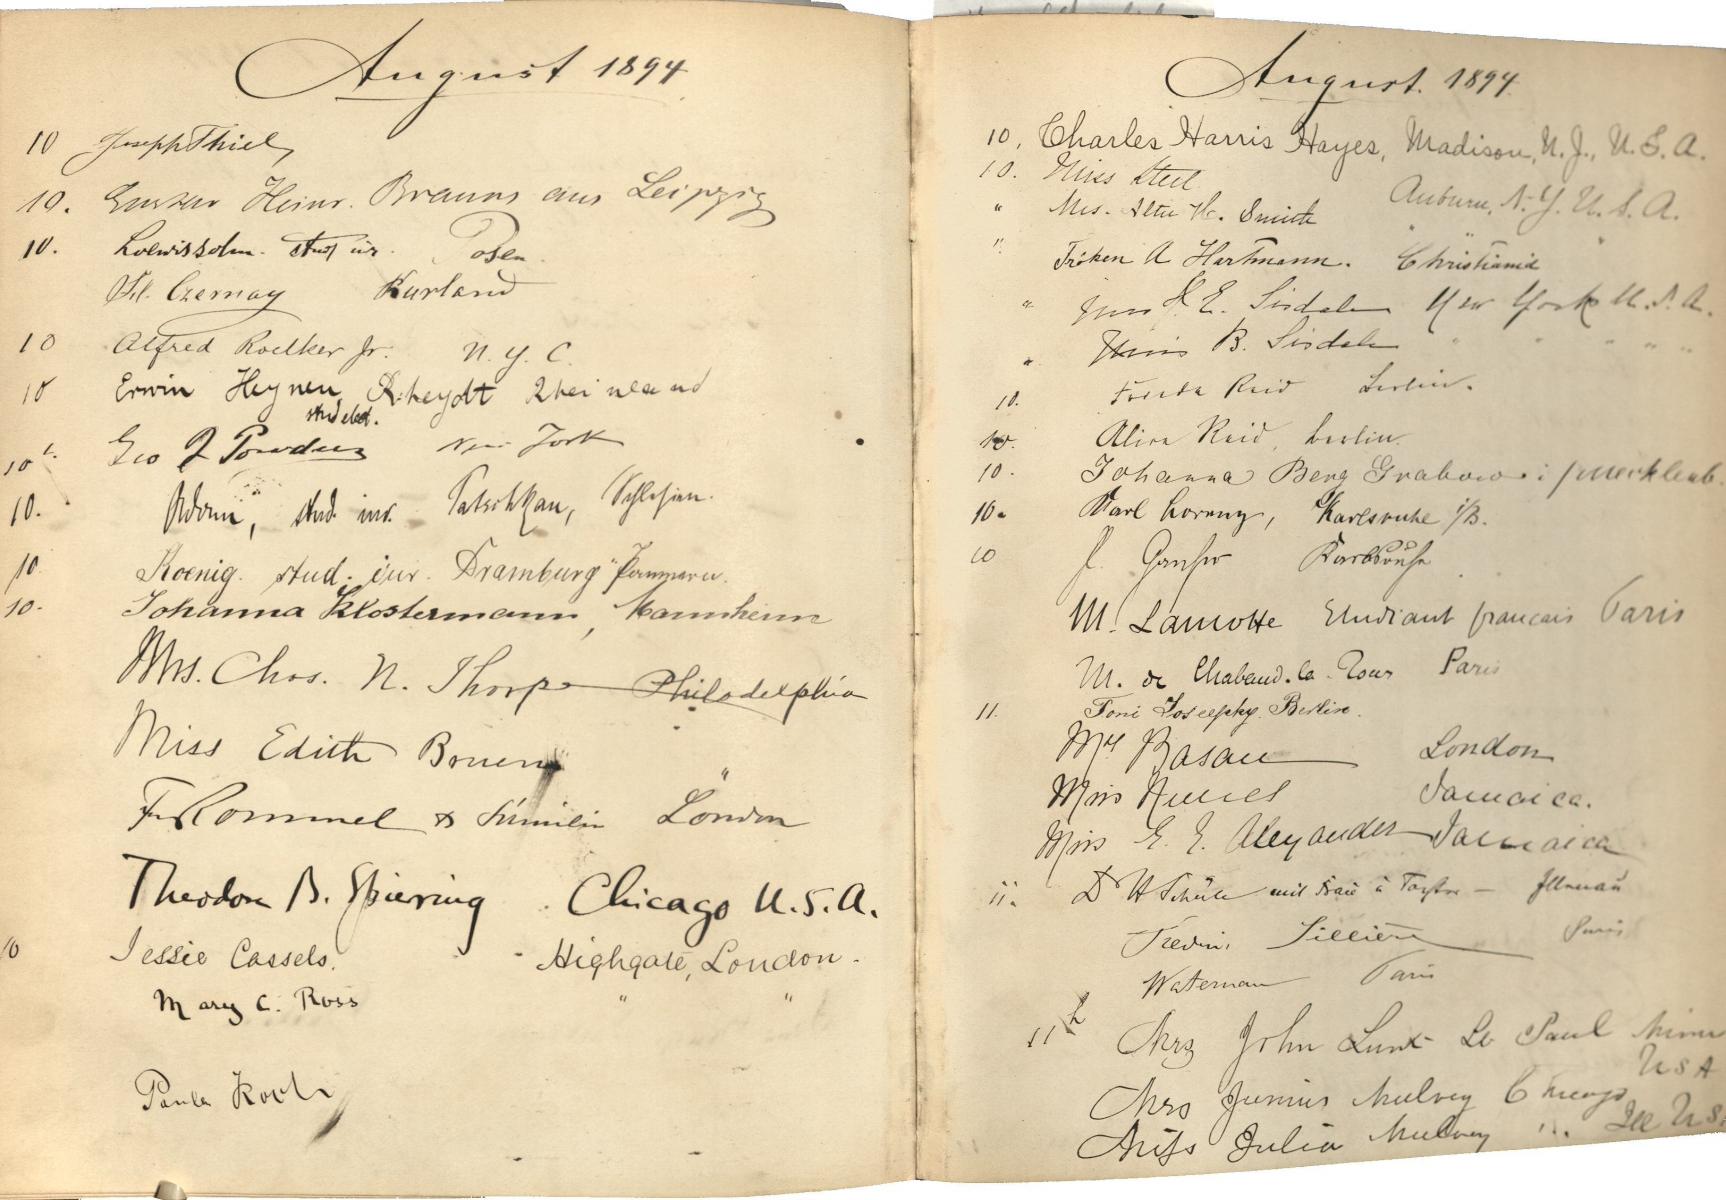 August 1894
10 Joseph Thiel,
10. Gustav Heinr. Brauns aus Leipzig
10. Loewissohn. stud. iur. Posen.
Frl. Czernay Kurland
10 Alfred Roelker Jr. N. Y. C.
10 Erwin Heynen Rheydt Rheinland
stud elect.
10 Geo New York
10. Adam, stud. iur. Patschkau, Schlesien.
10 Koenig. stud. iur. Dramburg Pommern.
10. Johanna Klostermann, Mannheim
Mrs. Chas. N. Thorpe Philadelphia
Miss Edith Bruen "
F. Rommel & Familie London
Theodore B. Spiering Chicago U.S.A.
10 Jessie Cassels. Highgate, London.
Mary C. Ross " "
Paula Koch
August. 1894.
10, Charles Harris Hayes, Madison, N. J., U. S. A.
10. Miss Steel Auburn, N. Y. U. S. A.
" Mrs. W. Smith " " "
" Fröken A Hartmann. Christiania
" S. E. Sisdale New York U. S. A.
" Miss B. Sisdale " " " " "
10. Reid Berlin.
10. Alice Reid, Berlin.
10. Johanna Berg Grabow i/meeklenb.
10. Karl Lorenz, Karlsruhe i/B.
10 Karlsruhe
M. Lamotte Etudiant français Paris
M. de Chabaud-la-Tour Paris
11. Toni Josephy. Berlin.
London
Miss Nunes Jamaica.
Miss E. E. Alexander Jamaica
11. Dr H Schüle mit Frau Illenau
Sillière Paris
Waterman Paris
11th Mrs John Lunt St Paul Minn
USA
Mrs Junius Mulvey Chicago
Miss Julia Mulvey " Ill U S